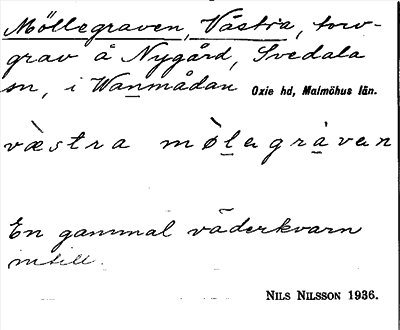 Möllegraven, Västra, torv-
grav å Nygård, Svedala
sn, i Wanmådan Oxie hd, Malmöhus län.
væ̀stra mø̀lagràvan
En gammal väderkvarn
intill.
NILS NILSSON 1936.